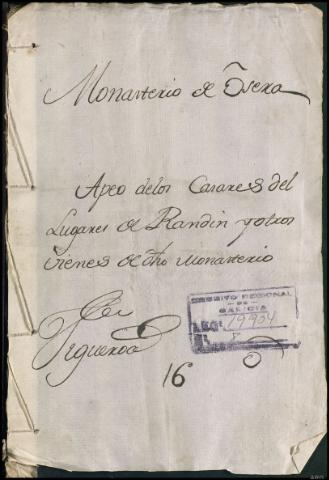 Monasterio de Osera
Apeo delos Casares del
Lugares de Randin y otros
vienes de dho Monasterio
Figueroa
16
ARCHIVO REGIONAL
DE
GALICIA
LEG. 19904